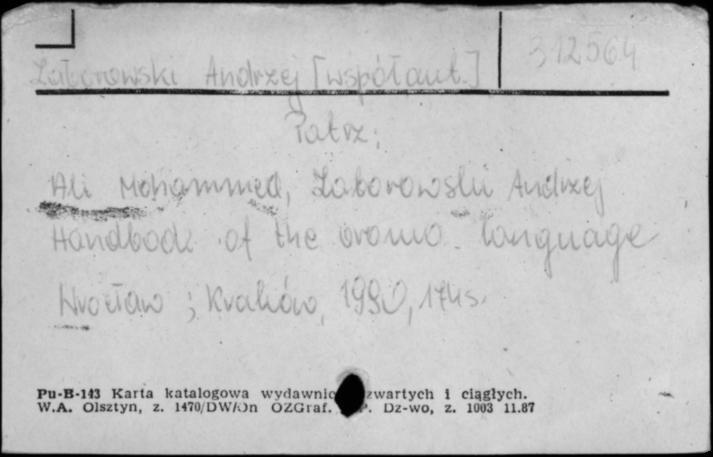 Zaborowski Andrzej [współaut.] 312564
Patrz:
Ali Mohammed, Zaborowski Andrzej
Handbook of the oromo language
Wrocław ; Kraków, 1990, 174 s.
Pu-B-143 Karta katalogowa wydawnic zwartych i ciągłych.
W.A. Olsztyn, z. 1470/DW/On OZGraf. P. Dz-wo, z. 1003 11.87